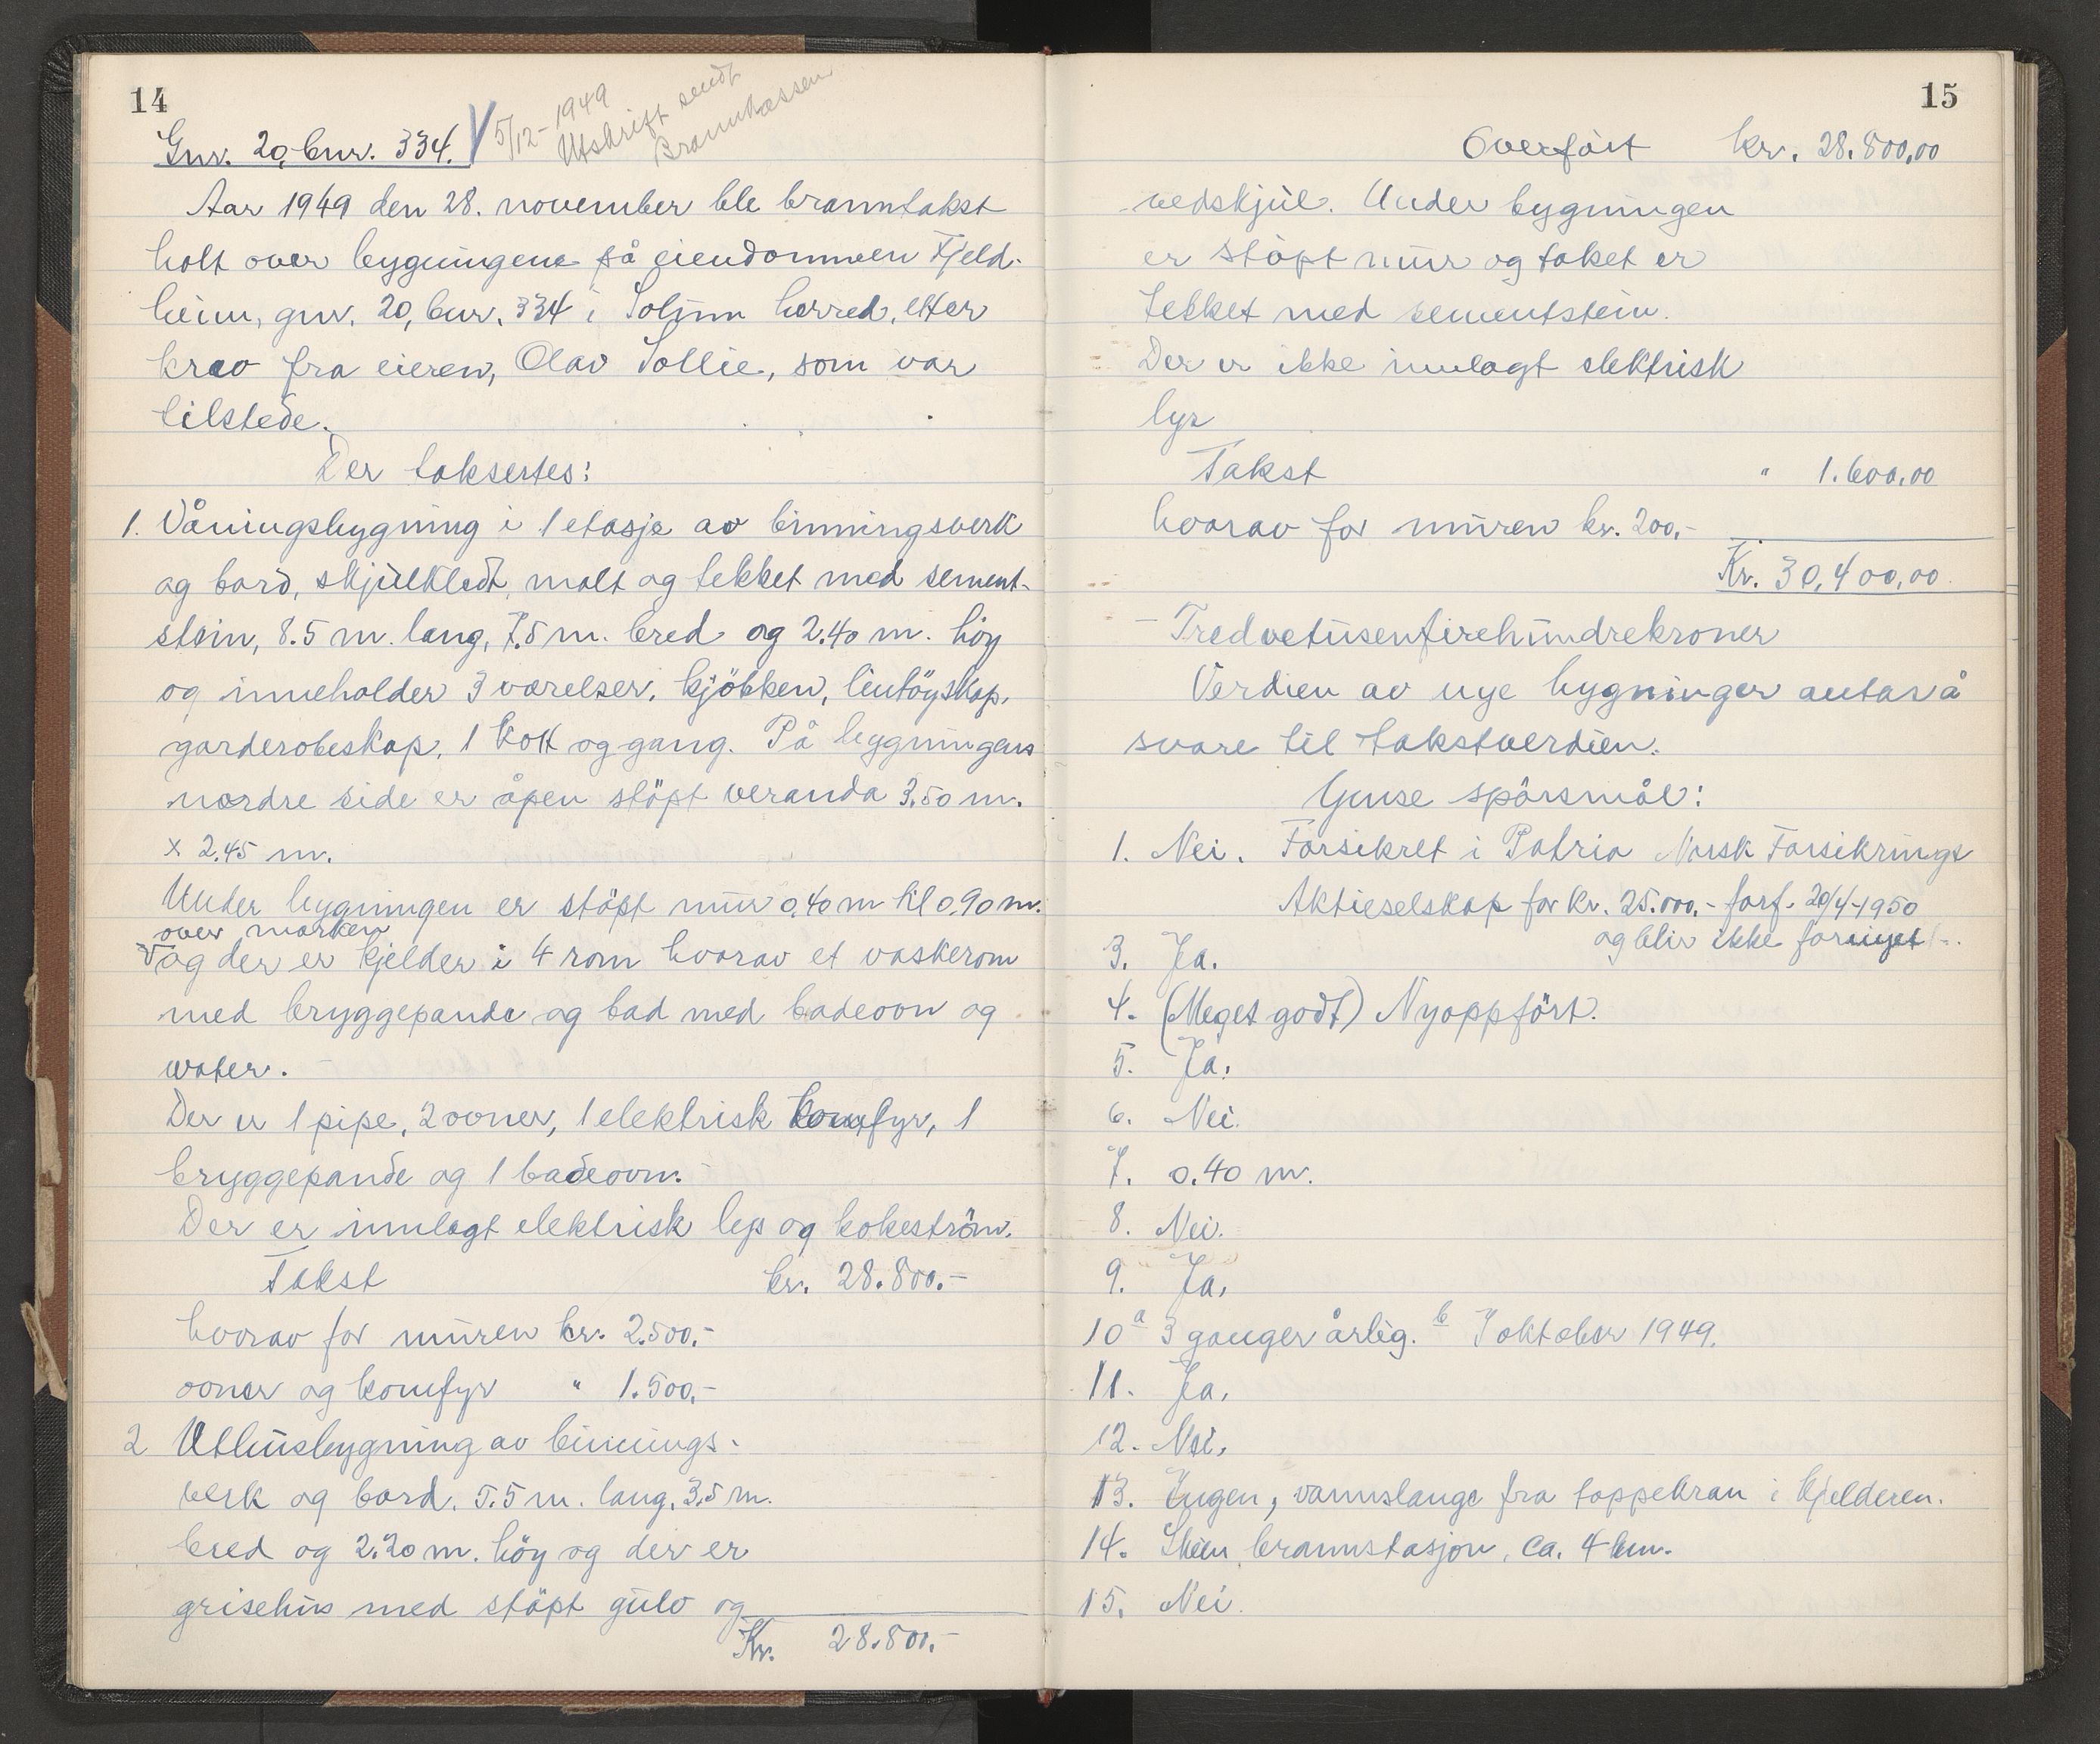 14
Gnr. 20, bnr. 334.
5/12-1949
Utskrift sendt
Brannkassen
Aar 1949 den 28. november ble branntakst
holt over bygningene på eiendommen Fjeld-
heim, gnr. 20, bnr. 334 i Solum herred, etter
krav fra eieren, Olav Sollie, som var
tilstede.
Der taksertes:
1. Våningsbygning i 1 etasje av binningsverk
og bord, skjulkledt, malt og tekket med sement-
stein, 8.5 m. lang, 7.5 m. bred og 2.40 m. höy
og inneholder 3 værelser, kjökken, lintöyskap,
garderobeskap, 1 kott og gang. På bygningens
nordre side er åpen stöpt veranda 3.50 m.
x 2.45 m.
Under bygningen er stöpt mur 0,40 m til 0,90 m.
over marken
V og der er kjelder i 4 rom hvorav et vaskerom
med bryggepande og bad med badeovn og
water.
Der er 1 pipe, 2 ovner, 1 elektrisk komfyr, 1
bryggepande og 1 badeovn.
Der er innlagt elektrisk lys og kokeström.
Takst kr. 28.800.-
hvorav for muren kr. 2.500,-
ovner og komfyr " 1.500,-
2 Uthusbygning av binnings-
verk og bord, 5.5 m. lang, 3.5 m.
bred og 2.20 m. höy og der er
grisehus med stöpt gulv og
Kr. 28.800.-
15
Overfört kr. 28.800,00
vedskjul. Under bygningen
er stöpt mur og taket er
tekket med sementstein.
Der er ikke innlagt elektrisk
lys
Takst " 1.600,00
hvorav for muren kr. 200,-
Kr. 30.400,00
- Tredvetusenfirehundrekroner
Verdien av nye bygninger antas å
svare til takstverdien.
Gjense spörsmål:
1. Nei. Forsikret i Patria Norsk Forsikrings
Aktieselskap for kr. 25.000,- forf. 20/4-1950
og blir ikke fornyet -.
3. Ja.
4. (Meget godt) Nyoppfört.
5. Ja.
6. Nei.
7. 0.40 m.
8. Nei.
9. Ja.
10 a 3 ganger årlig. b I oktober 1949.
11. Ja.
12. Nei.
13. Ingen, vannslange fra tappekran i kjelderen.
14. Skien brannstasjon, ca. 4 km.
15. Nei.